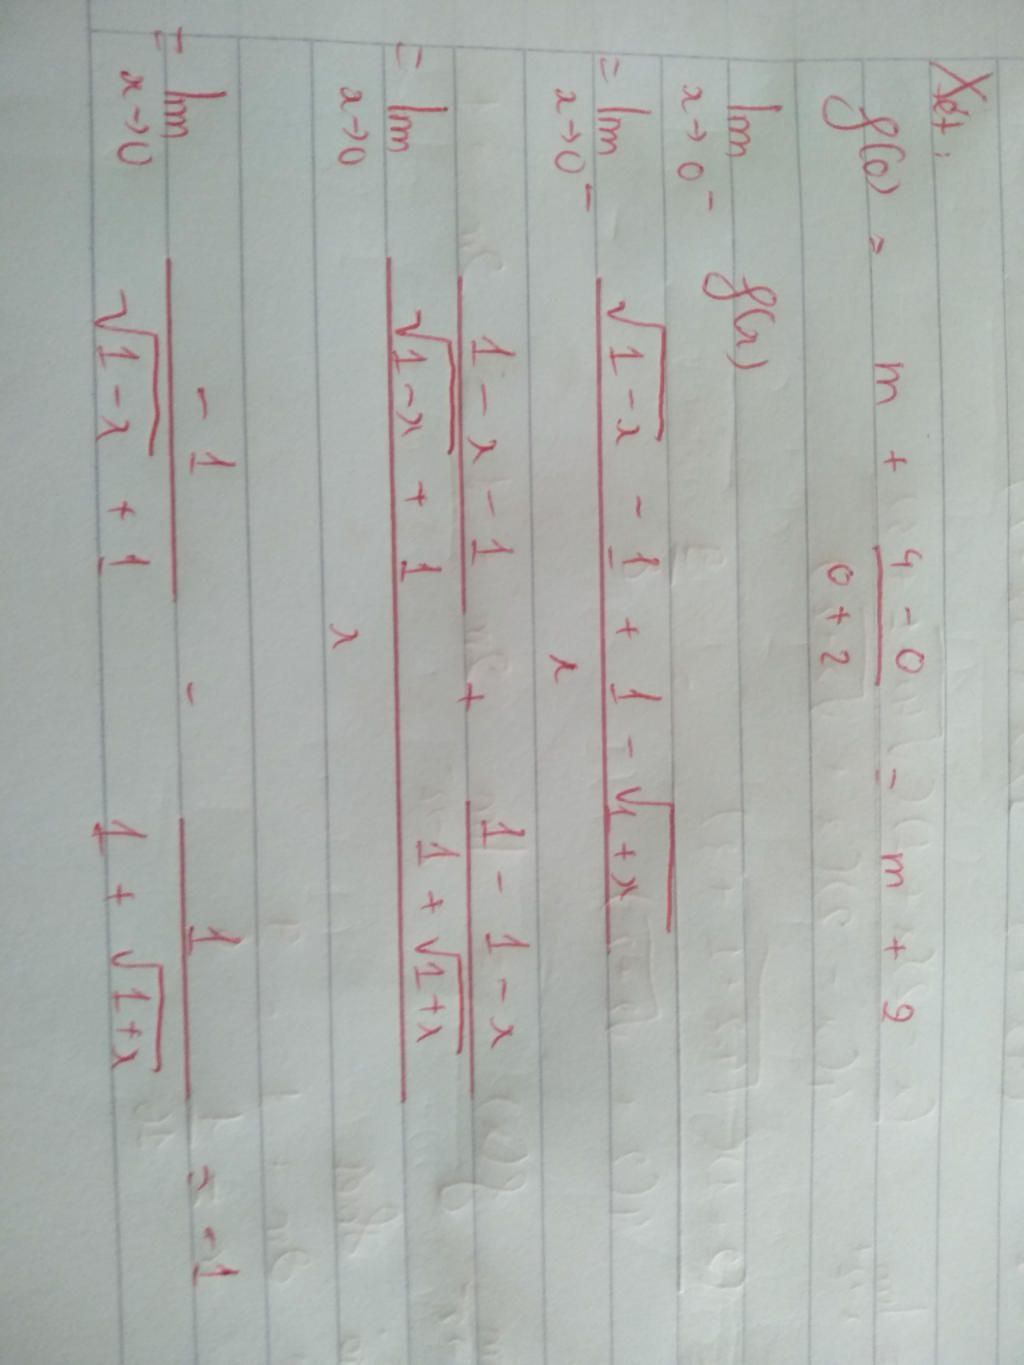 Xét:
f(0) = m + \frac{4-0}{0+2} = m + 2
lim_{x→0^-} f(x)
= lim_{x→0^-} \frac{\sqrt{1-x} - 1 + 1 - \sqrt{1+x}}{x}
= lim_{x→0} \frac{\frac{1-x-1}{\sqrt{1-x}+1} + \frac{1-1-x}{1+\sqrt{1+x}}}{x}
= lim_{x→0} \frac{-1}{\sqrt{1-x}+1} - \frac{1}{1+\sqrt{1+x}} = -1